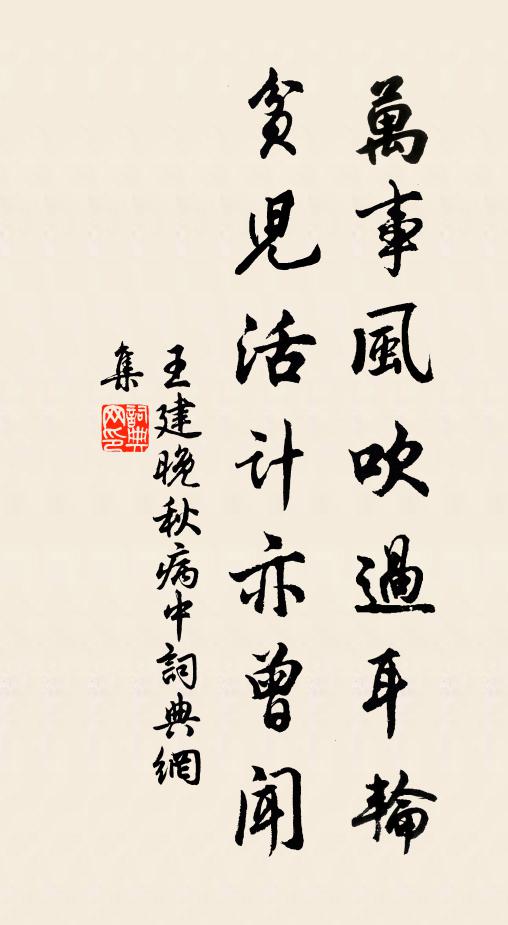 萬事風吹過耳輪
貧児活计亦曾聞
王建晚秋病中詞典網
集
詞典网印